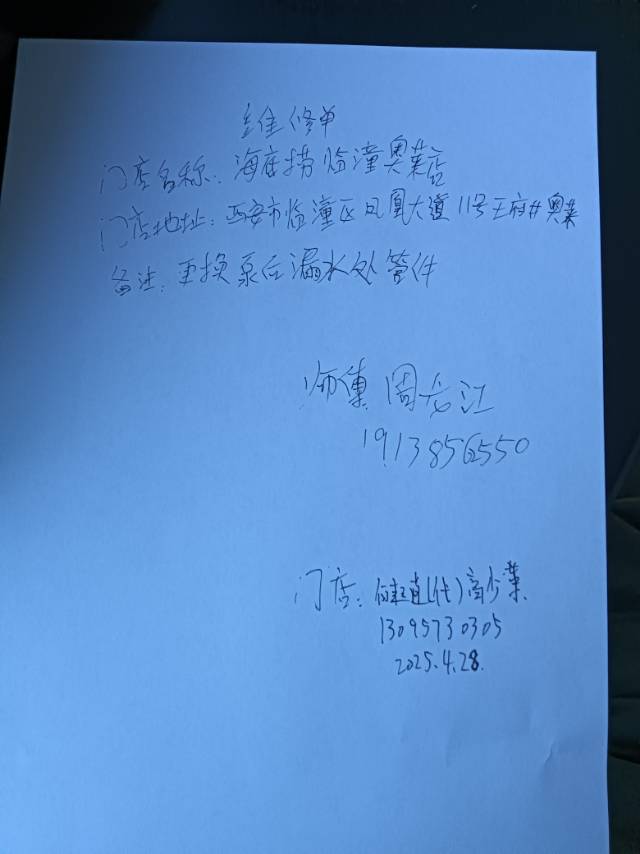 维修单
门店名称：海底捞临潼奥莱店
门店地址：西安市临潼区凤凰大道11号王府井奥莱
备注：更换泵后漏水处管件
师傅 周长江
1913856550
门店：（代）高少
13095730305
2025.4.28.